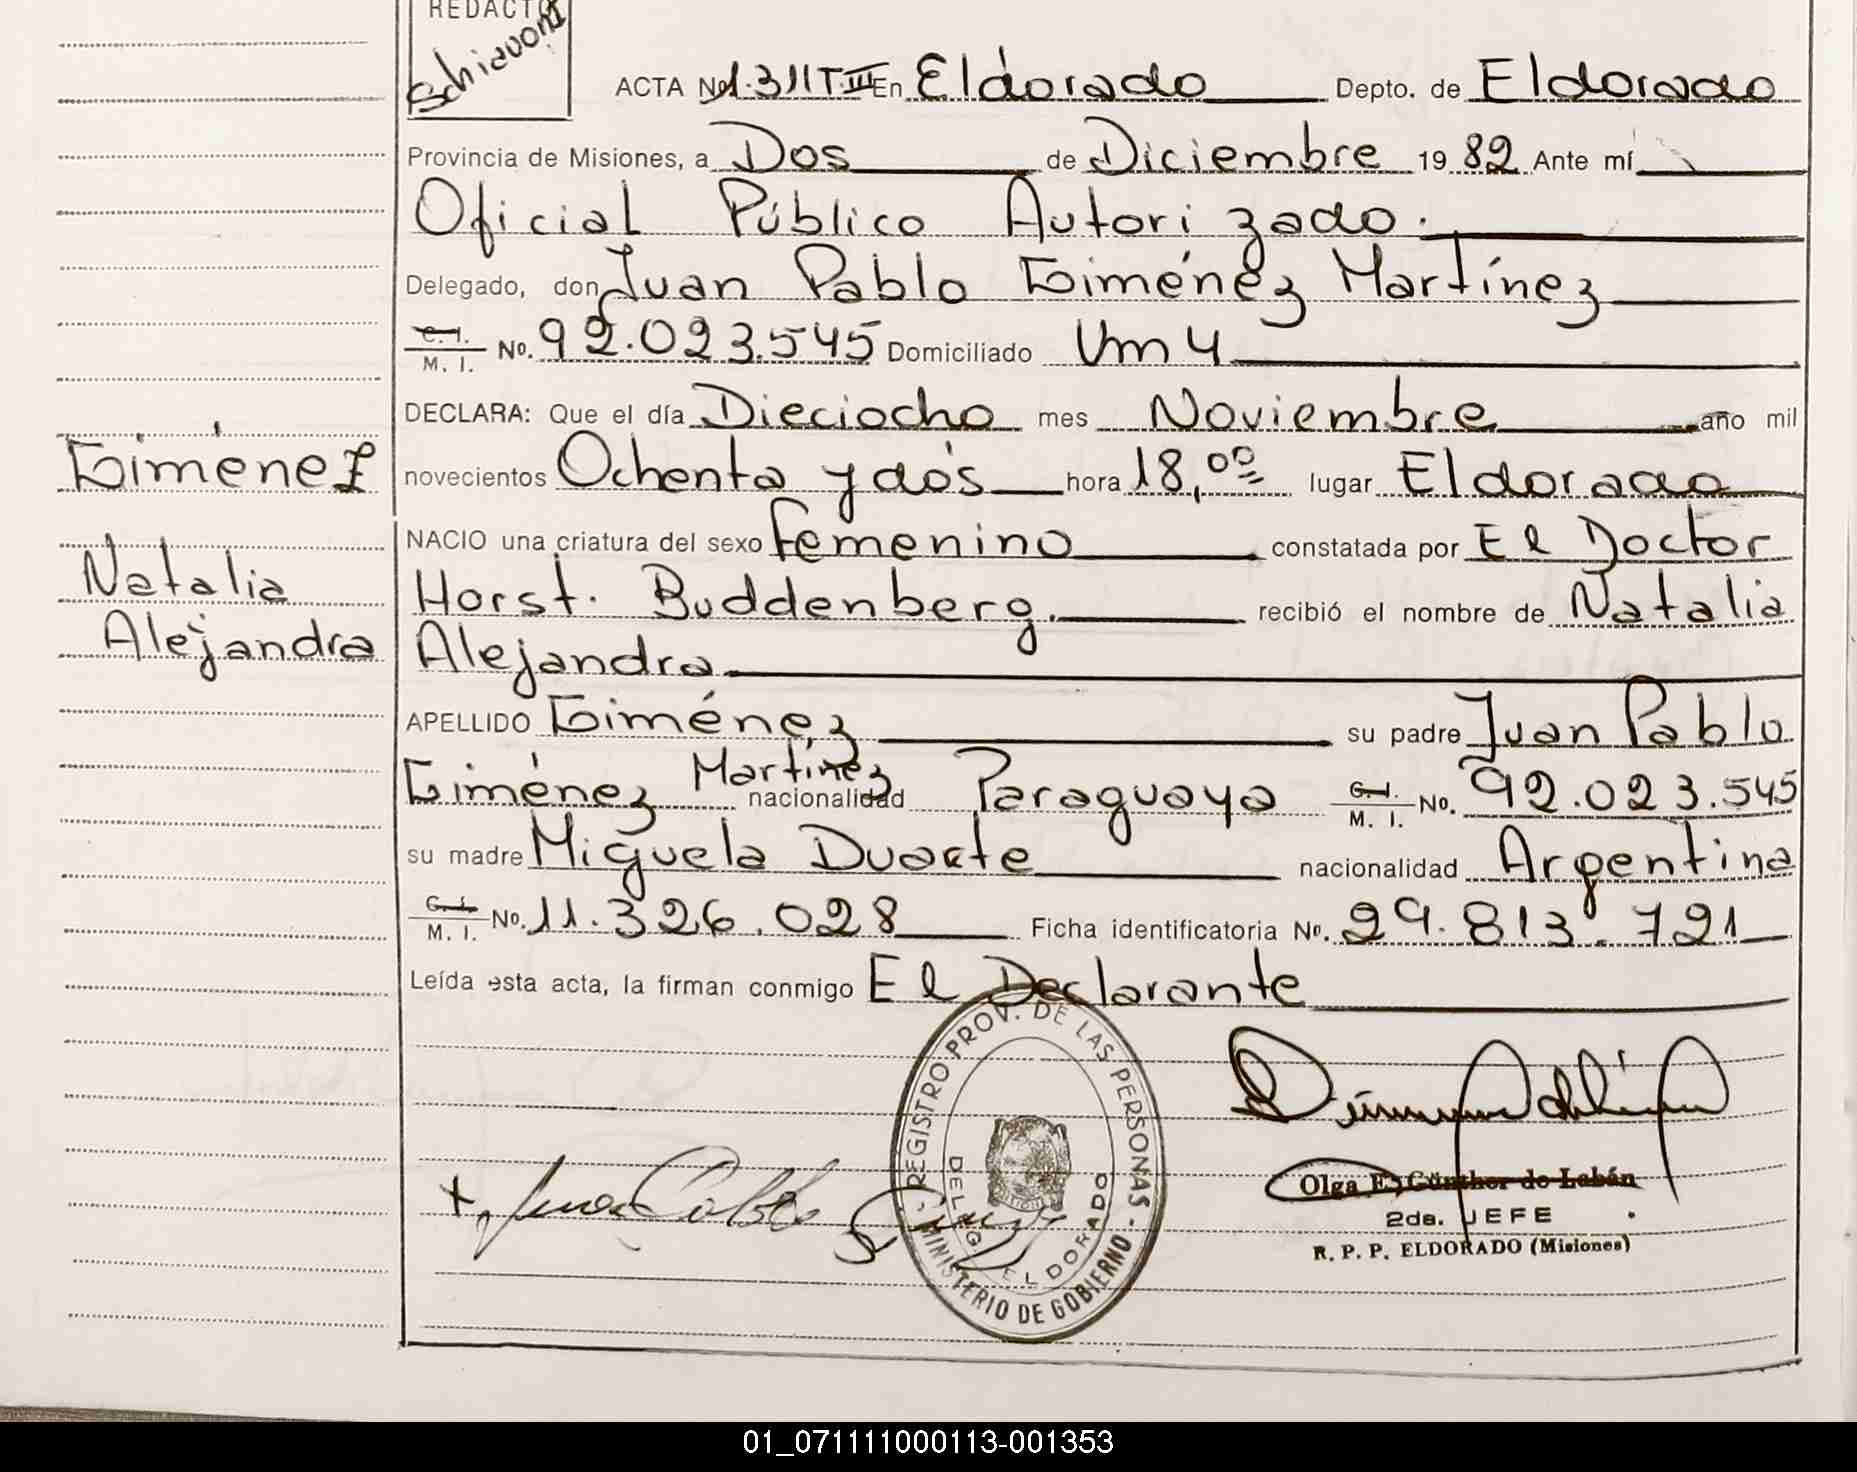 REDACTO
Schiavoni
ACTA No 1.311 T.III En Eldorado Depto. de Eldorado
Provincia de Misiones, a Dos de Diciembre 1982 Ante mí
Oficial Público Autorizado.
Delegado, don Juan Pablo Giménez Martínez
C. I.
M. I. No. 92.023.545 Domiciliado Km 4
DECLARA: Que el día Dieciocho mes Noviembre año mil
novecientos Ochenta y dos hora 18,00 lugar Eldorado
Giménez
NACIO una criatura del sexo femenino constatada por El Doctor
Natalia
Horst. Buddenberg. recibió el nombre de Natalia
Alejandra
Alejandra
APELLIDO Giménez su padre Juan Pablo
Giménez Martínez nacionalidad Paraguaya C. I. M. I. No. 92.023.545
su madre Miguela Duarte nacionalidad Argentina
C. I.
M. I. No. 11.326.028 Ficha identificatoria No. 29.813.721
Leída esta acta, la firman conmigo El Declarante
REGISTRO PROV. DE LAS PERSONAS - MINISTERIO DE GOBIERNO -
DELEG. ELDORADO
Juan Pablo
Olga E. Günther de Labán
2da. JEFE
R. P. P. ELDORADO (Misiones)
01_071111000113-001353